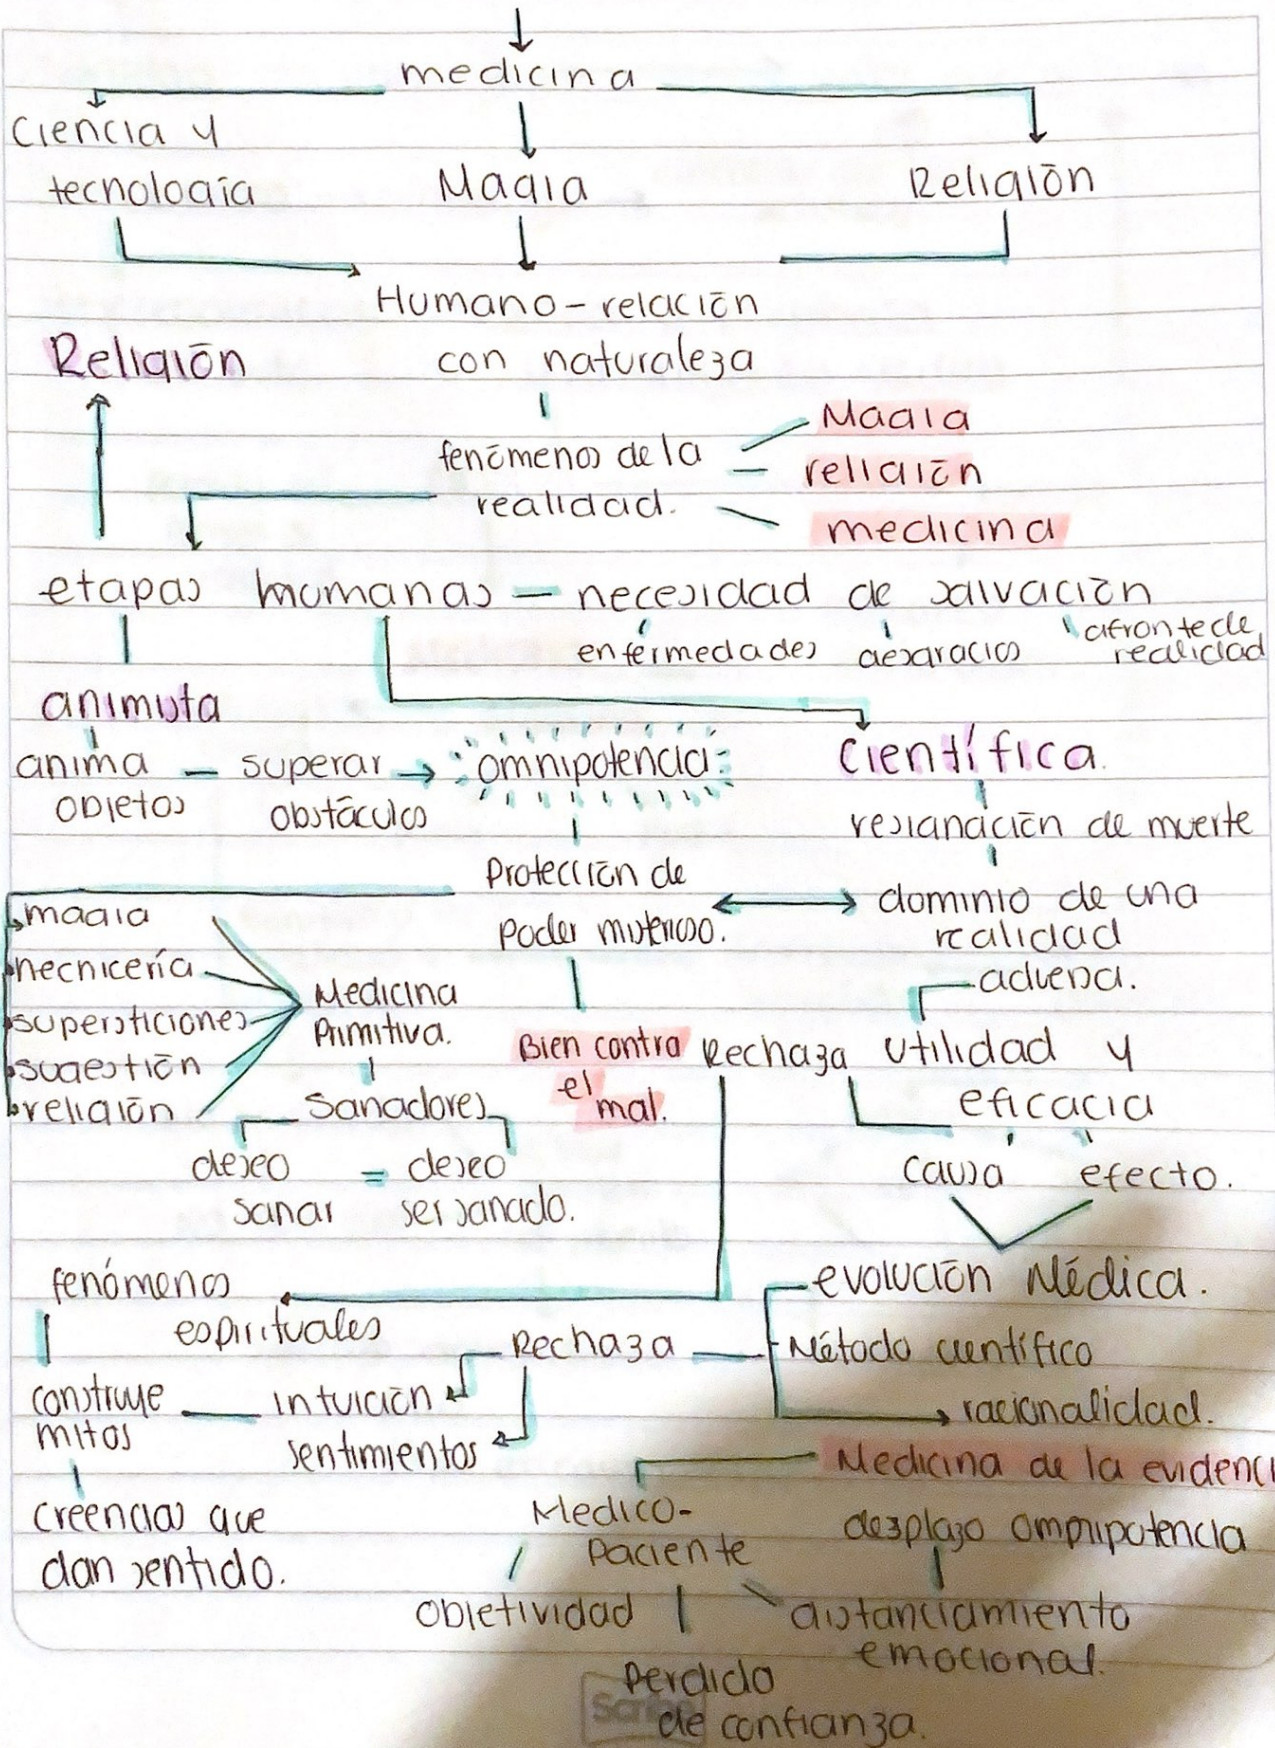 medicina
Ciencia y
tecnología
Magia
Religión
Humano - relación
con naturaleza
Religión
fenómenos de la
realidad.
Magia
religión
medicina
etapas humanas - necesidad de salvación
enfermedades
desgracias
afronte de
realidad
animista
anima
objetos
- superar
obstáculos
omnipotencia
Científica.
resignación de muerte
Protección de
poder misterioso.
dominio de una
realidad
adversa.
magia
hechicería
supersticiones
sugestión
religión
Medicina
Primitiva.
Sanadores
deseo
sanar
=
deseo
ser sanado.
Bien contra
el
mal.
Rechaza
utilidad y
eficacia
causa
efecto.
evolución Médica.
Método científico
racionalidad.
Rechaza
intuición
sentimientos
fenómenos
espirituales
construye
mitos
creencias que
dan sentido.
Medicina de la evidenci
desplazo omnipotencia
Medico-
paciente
objetividad
distanciamiento
emocional.
Perdida
de confianza.
Scribe